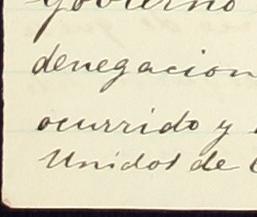 gobierno
denegacion
ocurrido y
Unidos de